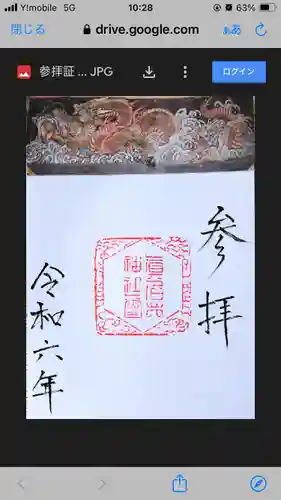 Y!mobile 5G
10:28
63%
閉じる
drive.google.com
ぁあ
参拝証 ... .JPG
ログイン
参拝
令和六年